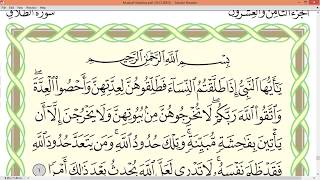 الجزء الثامن والعشرون
سورة الطلاق
بِسْمِ اللَّهِ الرَّحْمَٰنِ الرَّحِيمِ
يَا أَيُّهَا النَّبِيُّ إِذَا طَلَّقْتُمُ النِّسَاءَ فَطَلِّقُوهُنَّ لِعِدَّتِهِنَّ وَأَحْصُوا الْعِدَّةَ
وَاتَّقُوا اللَّهَ رَبَّكُمْ لَا تُخْرِجُوهُنَّ مِنْ بُيُوتِهِنَّ وَلَا يَخْرُجْنَ إِلَّا أَنْ
يَأْتِينَ بِفَاحِشَةٍ مُبَيِّنَةٍ وَتِلْكَ حُدُودُ اللَّهِ وَمَنْ يَتَعَدَّ حُدُودَ اللَّهِ
فَقَدْ ظَلَمَ نَفْسَهُ لَا تَدْرِي لَعَلَّ اللَّهَ يُحْدِثُ بَعْدَ ذَٰلِكَ أَمْرًا ١